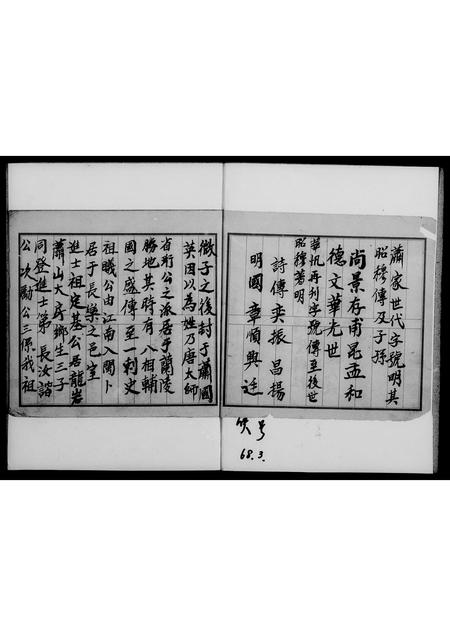 蕭家世代字號明其
昭穆傳及子孫
尚景存甫昆孟和
德文華光世
華汎再刋字號傳至後世
昭穆著明
詩傳奕振昌揚
明國章順興廷
微子之後封于蕭國
英因以為姓乃唐太師
省珩公之派居于蘭陵
勝地其時有八相輔
國之盛傳至一刺史
祖曦公由江南入閩卜
居于長樂之邑室
進士祖定基公居龍岩
蕭山大房鄉生三子
同登進士第長汝諧
公次勵公三係我祖
68.3.